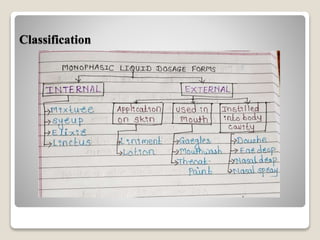 Classification
MONOPHASIC LIQUID DOSAGE FORMS
INTERNAL
EXTERNAL
Mixture
Syrup
Elixir
Linctus
Application
on skin
Liniment
Lotion
Used in
Mouth
Gargles
Mouthwash
Throat
Paint
Instilled
into body
cavity
Douche
Ear drop
Nasal drop
Nasal spray